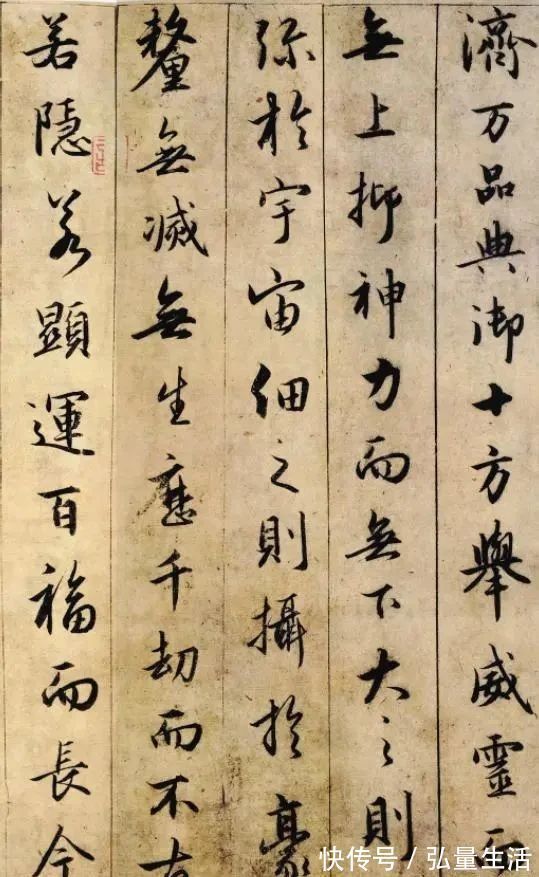 濟万品典御十方舉威靈而
無上抑神力而無下大之則
弥於宇宙細之則攝於豪
釐無滅無生歷千劫而不古
若隱若顯運百福而長今
快传号 / 弘量生活